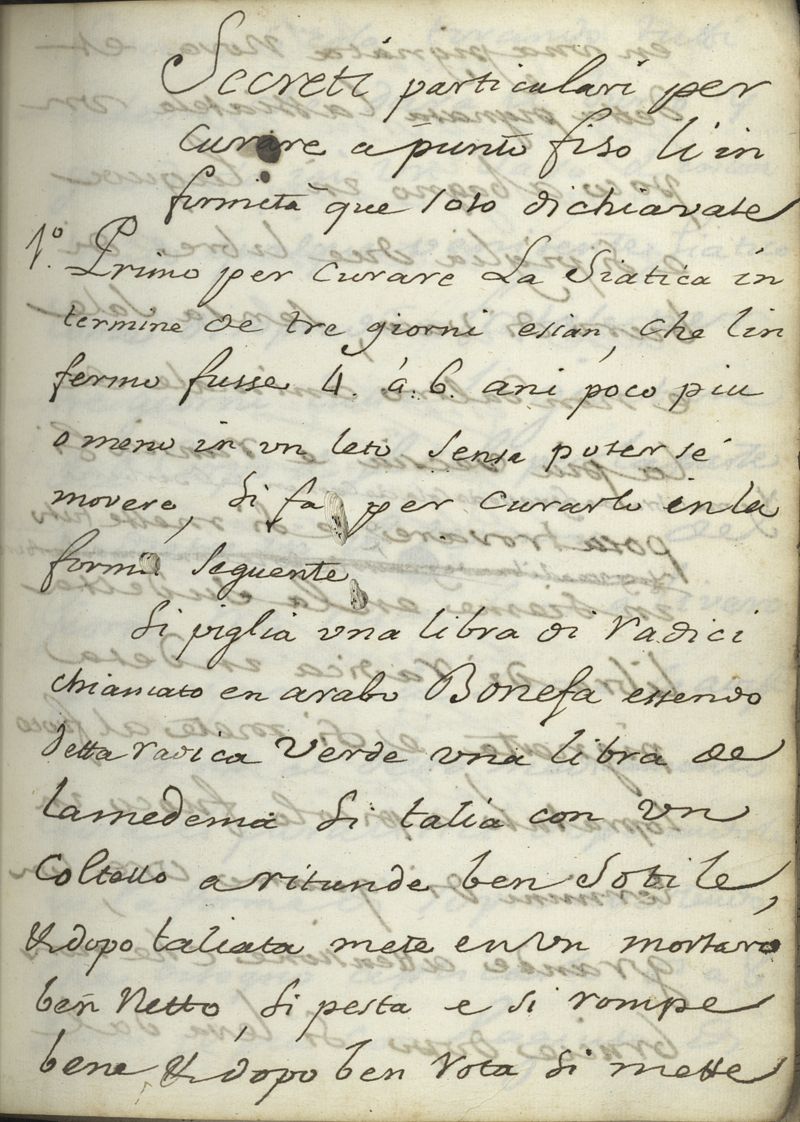 Secreti particulari per
curare a punto fiso li in
firmità que soto dichiarate
1º. Primo per curare La Siatica in
termine de tre giorni esian, che lin
fermo fusse 4. à. 6. ani poco piu
o meno in un leto sensa poter sé
movere, si fa per curarlo in la
forma seguente
Si piglia una libra di radici
chiamato en arabo Bonefa essendo
detta radica verde una libra de
lamedema si talia con un
coltello a ritunde ben sotile,
& dopo taliata mete en un mortaro
ben netto, si pesta e si rompe
bene & dopo ben rota si mette